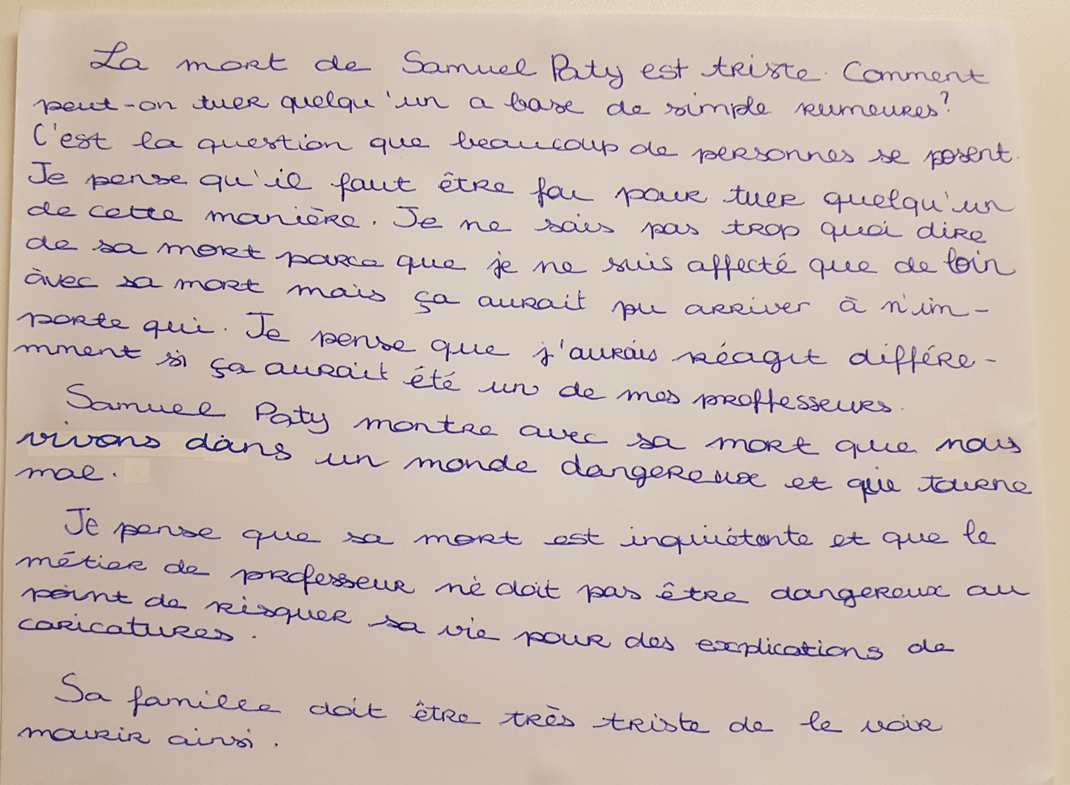 La mort de Samuel Paty est triste. Comment
peut-on tuer quelqu'un a base de simple rumeures?
C'est la question que beaucoup de personnes se posent.
Je pense qu'il faut être fou pour tuer quelqu'un
de cette manière. Je ne sais pas trop quoi dire
de sa mort parce que je ne suis affecté que de loin
avec sa mort mais ça aurait pu arriver à n'im-
porte qui. Je pense que j'aurais réagit différe-
mment si ça aurait été un de mes proffesseurs.
Samuel Paty montre avec sa mort que nous
vivons dans un monde dangereux et qui tourne
mal.
Je pense que sa mort est inquiétante et que le
métier de professeur ne doit pas être dangereux au
point de risquer sa vie pour des explications de
caricatures.
Sa famille doit être très triste de le voir
mourir ainsi.